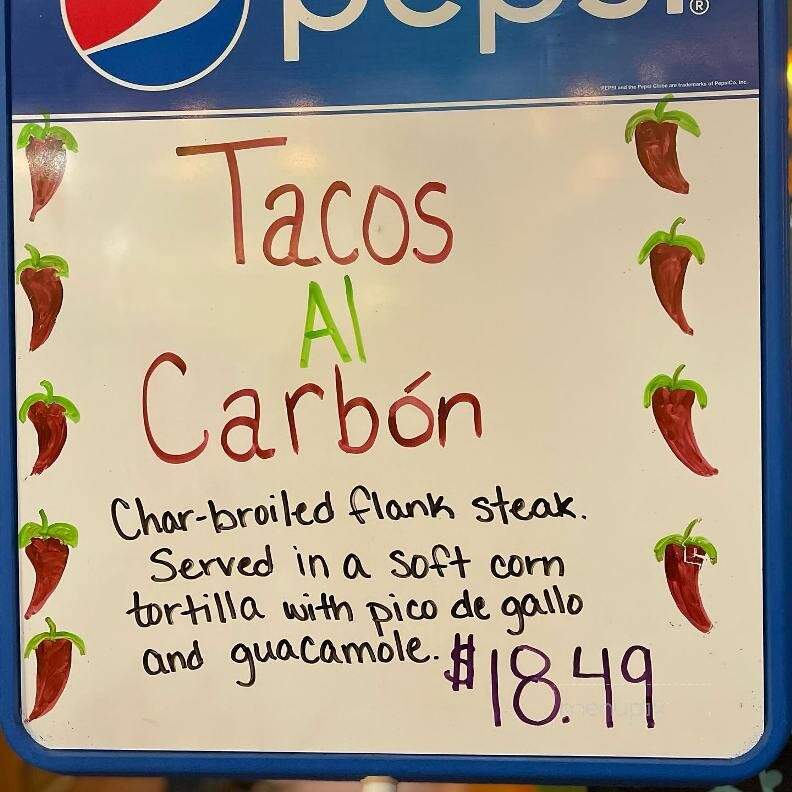 pepsi®
PEPSI and the Pepsi Globe are trademarks of PepsiCo, Inc.
Tacos
Al
Carbón
Char-broiled flank steak.
Served in a soft corn
tortilla with pico de gallo
and guacamole. $18.49
menupix